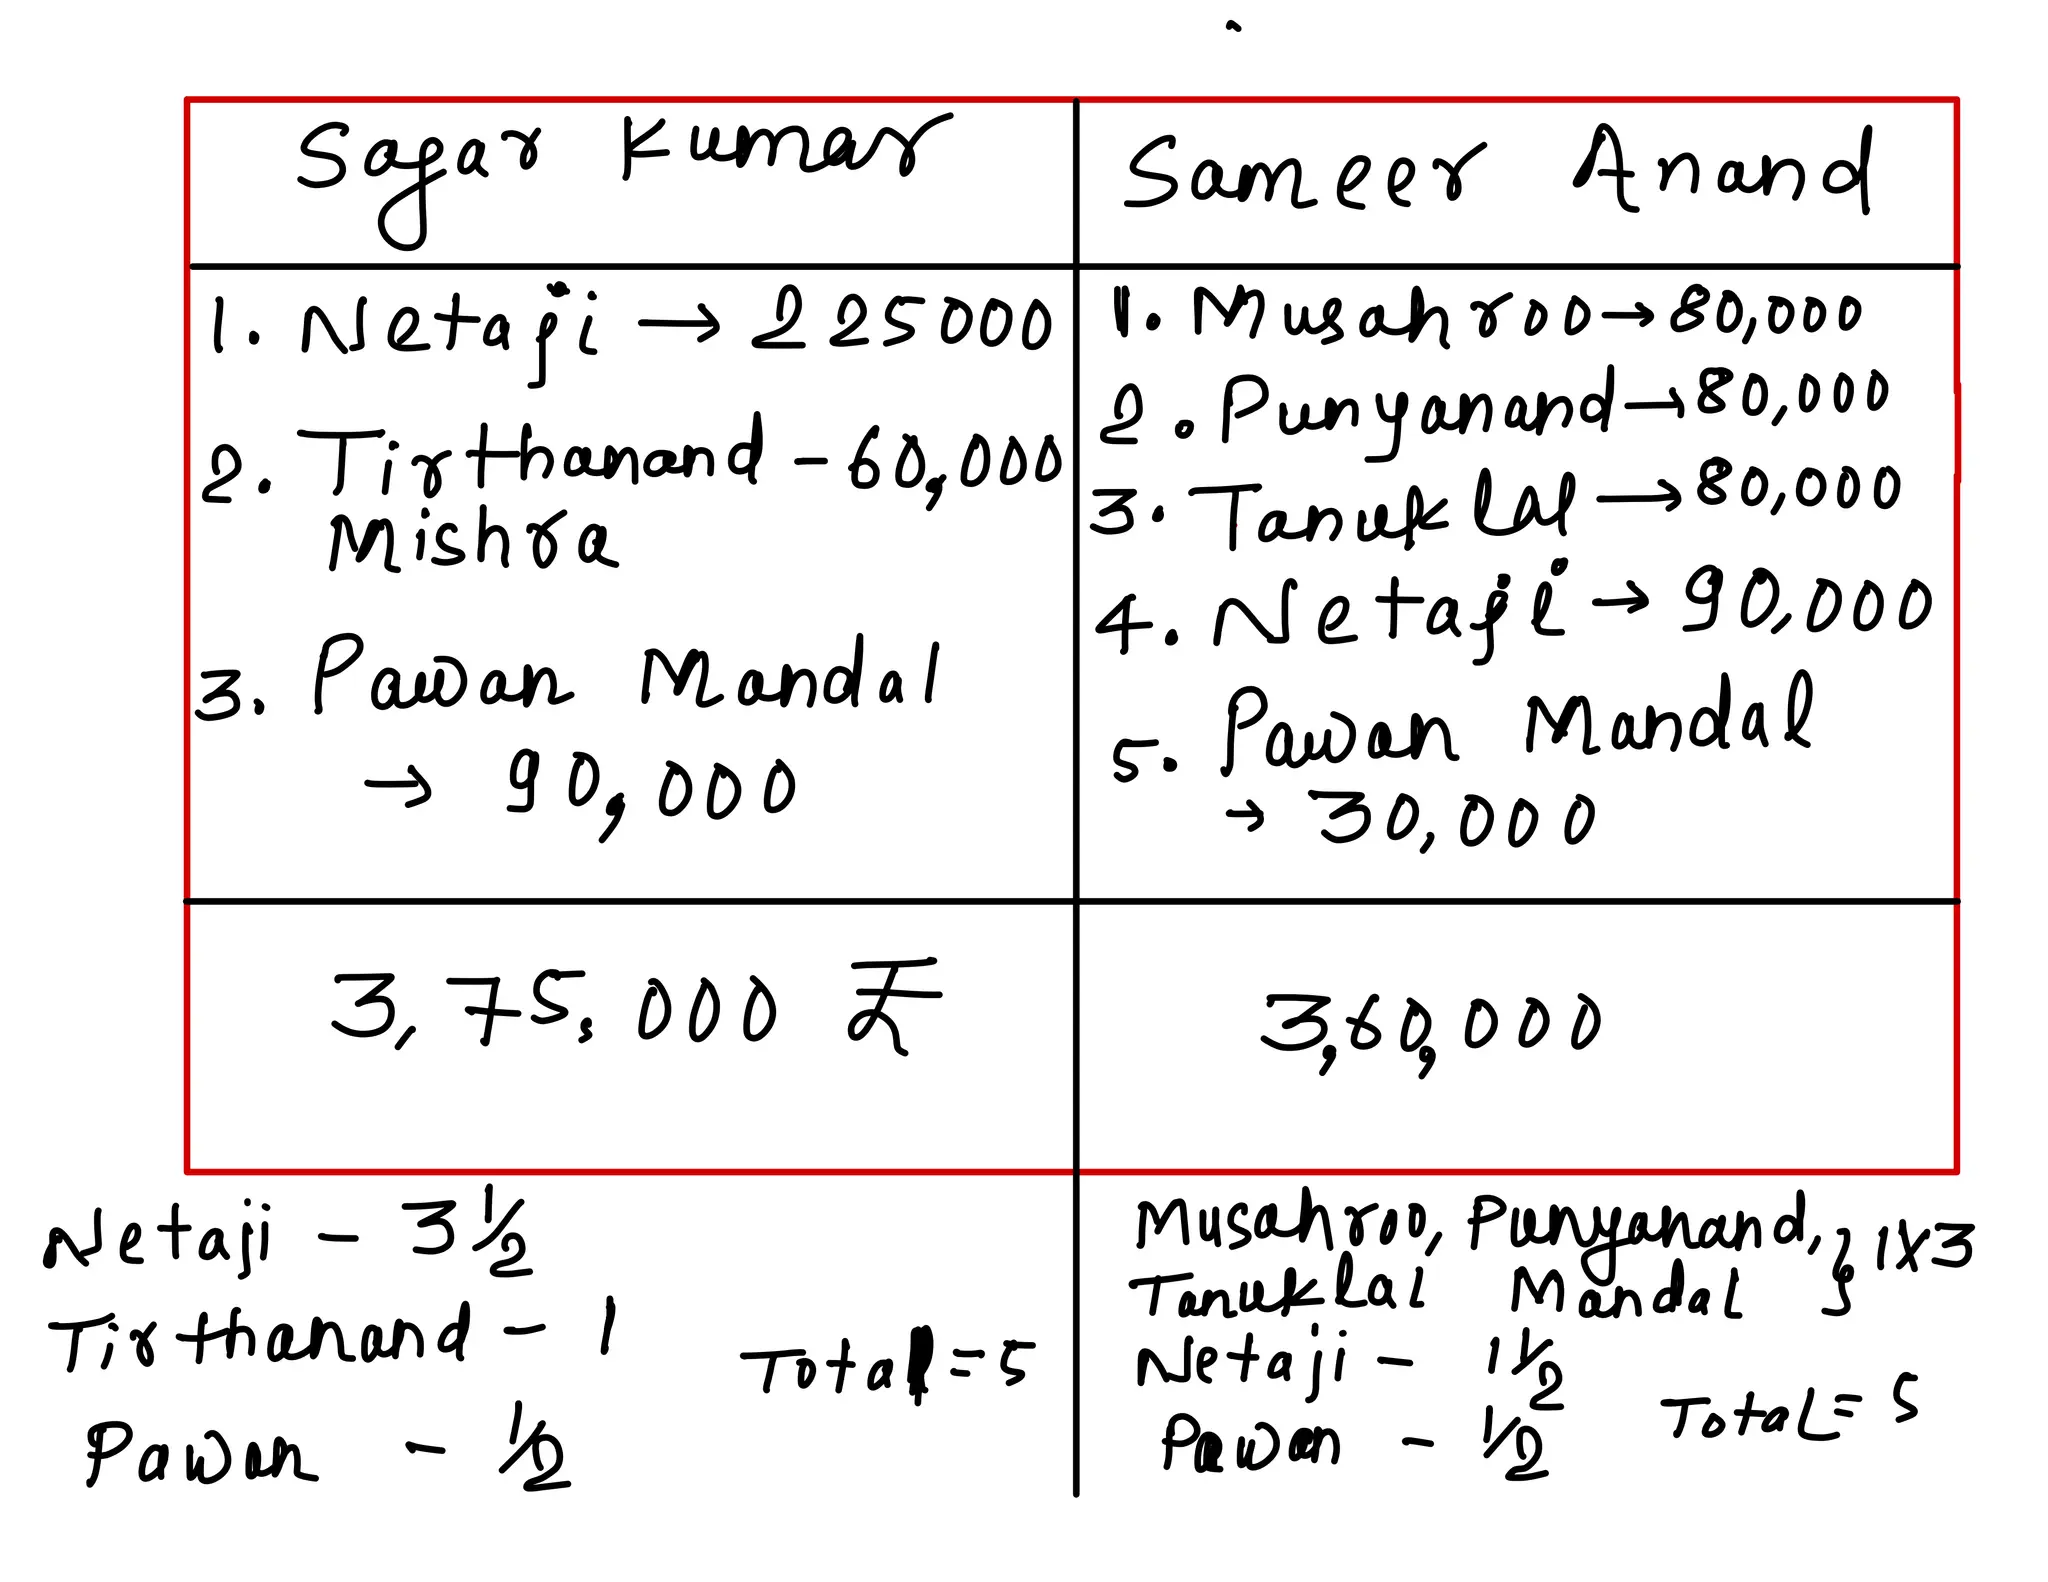 Sagar Kumar
1. Netaji → 225000
2. Tirthanand - 60,000
Mishra
3. Pawan Mandal
→ 90,000
3,75,000 ₹
Netaji - 3 1/2
Tirthanand - 1
Total = 5
Pawan - 1/2
Sameer Anand
1. Musahroo → 80,000
2. Punyanand → 80,000
3. Tanuklal → 80,000
4. Netaji → 90,000
5. Pawan Mandal
→ 30,000
3,60,000
Musahroo, Punyanand, } 1x3
Tanuklal Mandal
Netaji - 1 1/2
Total = 5
Pawan - 1/2